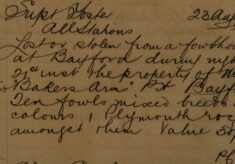 Supt Foster 23 Aug
All Stations
Lost or stolen from a fowlhouse
at Bayford during night
21st inst the property of M
"Bakers Arms" PH Bayf
Ten fowls mixed breeds
colours 1 Plymouth roc
amongst them Value 30